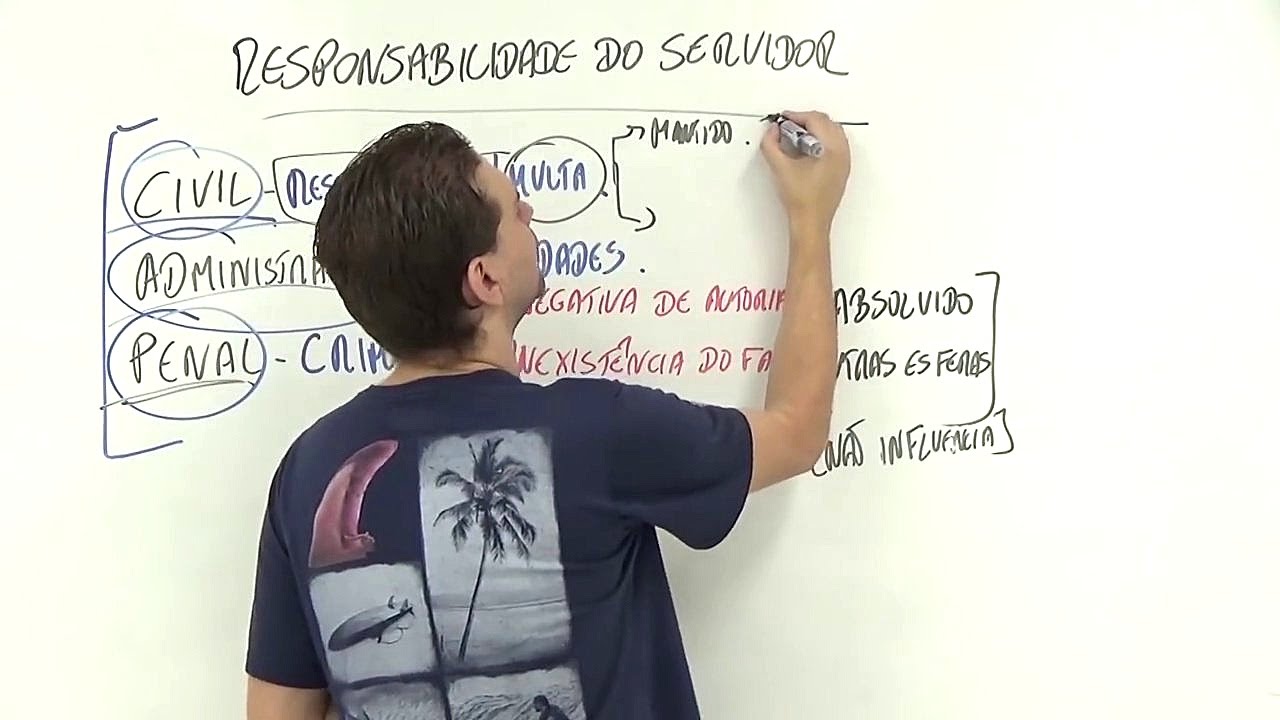 RESPONSABILIDADE DO SERVIDOR
CIVIL - RES MULTA . MANTIDO .
ADMINISTRA DADES .
NEGATIVA DE AUTORIA ABSOLVIDO
PENAL - CRIM INEXISTÊNCIA DO FA TRAS ESFERAS
[NÃO INFLUENCIA]